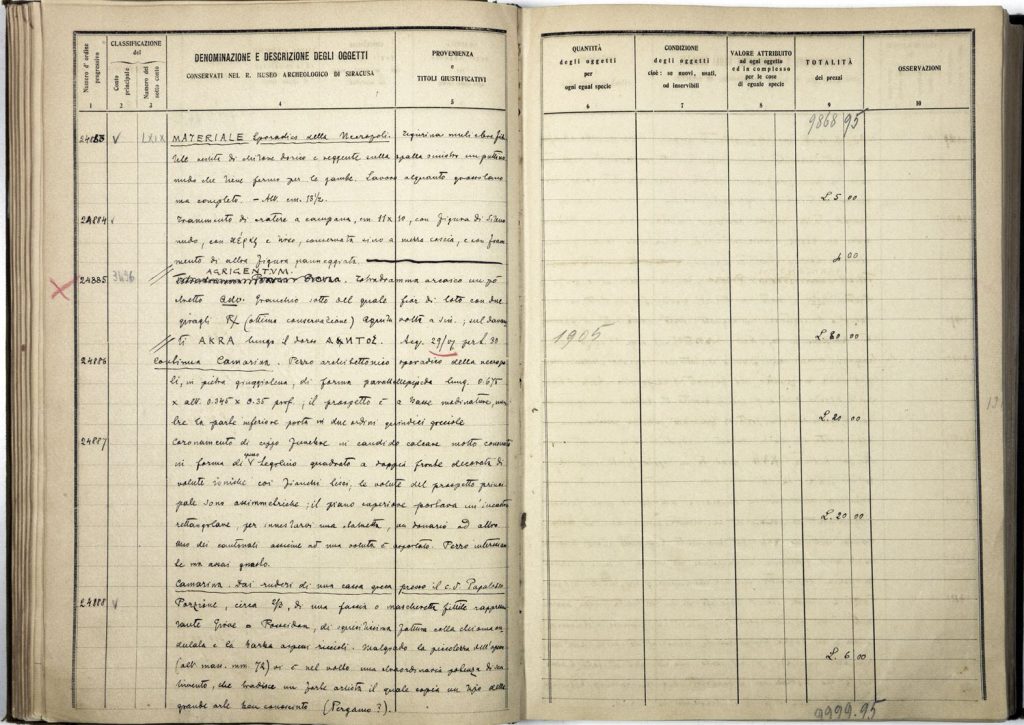 Numero d'ordine progressivo
CLASSIFICAZIONE
del
Conto principale
Numero del sotto conto
DENOMINAZIONE E DESCRIZIONE DEGLI OGGETTI
CONSERVATI NEL R. MUSEO ARCHEOLOGICO DI SIRACUSA
PROVENIENZA
e
TITOLI GIUSTIFICATIVI
1 2 3 4 5
24883 V LXIX MATERIALE Sporadico della Necropoli. Figurina muliebre fit
tile vestita di chitone dorico e reggente sulla spalla sinistra un puttino
nudo che tiene fermo per le gambe. Lavoro alquanto grossolano
ma completo. – Alt. cm. 13½.
24884 Frammento di cratere a campana, cm 11 x 10, con figura di Sileno
nudo, con κέρας e , conservata sino a mezza coscia, e con fram
mento di altra figura panneggiata.
AGRIGENTUM.
24885 3496 Tetradramma arcaico un pò
stretto Adv. Granchio sotto del quale fior di loto con due
giragli R/ (ottima conservazione) Aquila volta a sin.; sul davan
ti AKRA lungo il dorso Acq. 29/07 per L. 30
24886 Continua Camarina. Pezzo architettonico sporadico della necropo
li, in pietra giuggiolena, di forma parallelepipeda lung. 0.675
x alt. 0.345 x 0.35 prof.; il prospetto è a basse modinature, men
tre la parte inferiore porta in due ordini quindici gocciole
24887 Coronamento di cippo funebre in candido calcare molto consunto
in forma di tegolino quadrato a doppia fronte decorata di
volute ioniche coi fianchi lisci; le volute del prospetto princi
pale sono assimmetriche; il piano superiore portava un'incastro
rettangolare, per innestarvi una statuetta, un donario od altro.
Uno dei cantonali assieme ad una voluta è asportato. Pezzo interessan
te ma assai guasto.
Camarina. Dai ruderi di una casa greca presso il c.d. Papaleo
24888 V Porzione, circa 2/3, di una faccia o mascheretta fittile rappresen
tante Giove o Poseidon, di squisitissima fattura colla chioma on
dulata e la barba a spessi riccioli. Malgrado la piccolezza dell'opera
(alt. mass. mm. 72) vi è nel volto una straordinaria potenza di sen
timento, che tradisce un forte artista il quale copia un tipo della
grande arte ben conosciuto (Pergamo?).
QUANTITÀ
degli oggetti
per
ogni egual specie
CONDIZIONE
degli oggetti
cioè: se nuovi, usati,
od inservibili
VALORE ATTRIBUITO
ad ogni oggetto
ed in complesso
per le cose
di eguale specie
TOTALITÀ
dei prezzi
OSSERVAZIONI
6 7 8 9 10
9868 95
L. 5 00
4 00
1905 L. 80 00
L. 20 00
L. 20 00
L. 6 00
9999.95